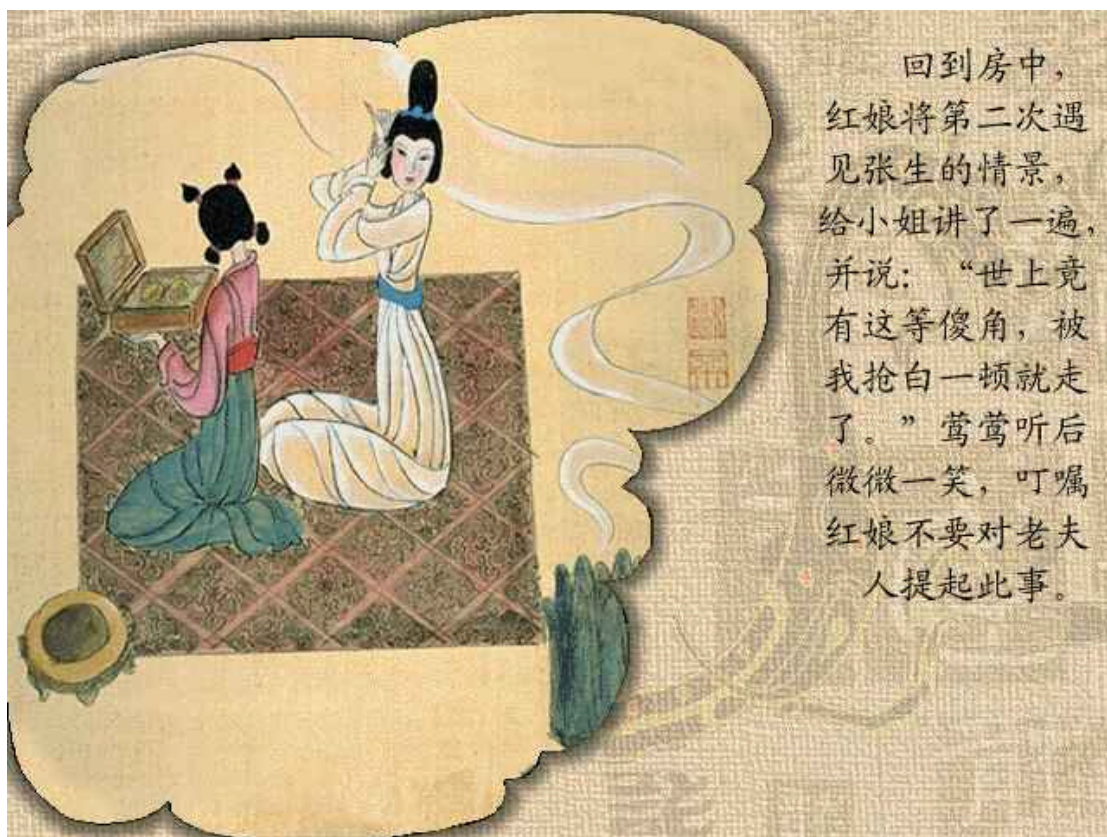 回到房中，
红娘将第二次遇
见张生的情景，
给小姐讲了一遍，
并说：“世上竟
有这等傻角，被
我抢白一顿就走
了。”莺莺听后
微微一笑，叮嘱
红娘不要对老夫
人提起此事。